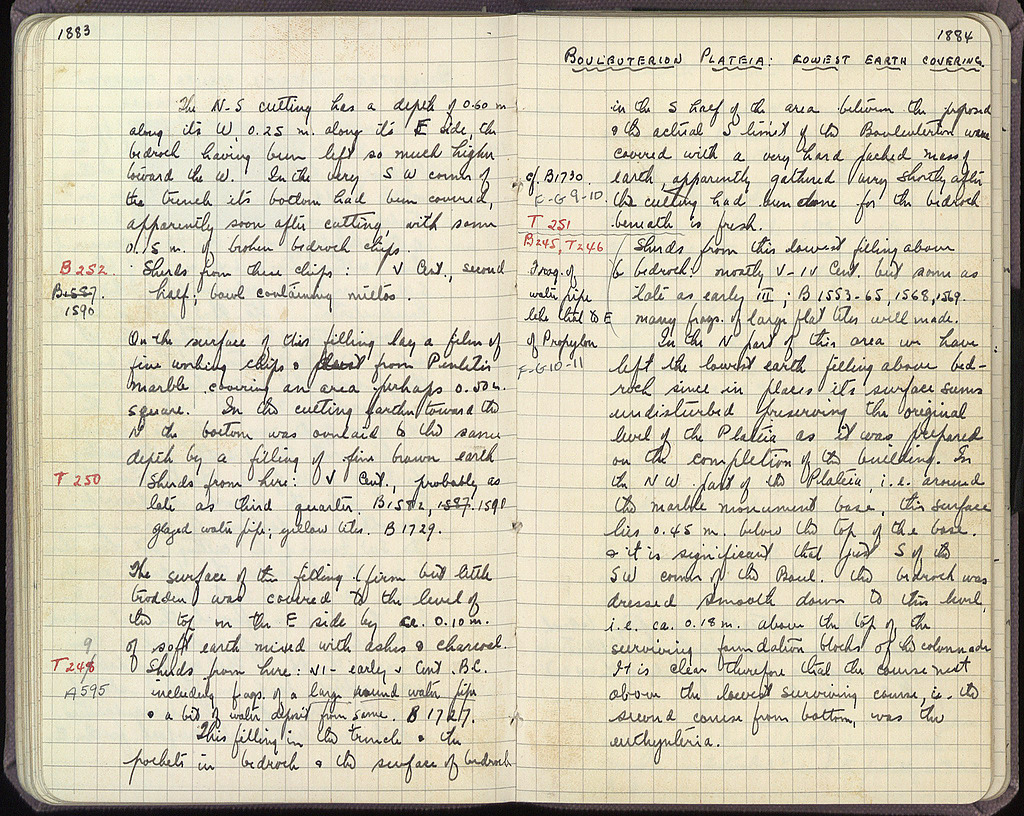 1883
The N-S cutting has a depth of 0.60 m
along its W, 0.25 m. along its E side, the
bedrock having been left so much higher
toward the W. In the very SW corner of
the trench its bottom had been covered,
apparently soon after cutting, with some
0.5 m. of broken bedrock chips.
B 252. Sherds from these chips: V Cent., second
B1587. half; bowl containing miltos.
1590
On the surface of this filling lay a film of
fine working chips & from Pentelic
marble covering an area perhaps 0.50 m.
square. In the cutting farther toward the
N the bottom was overlaid to the same
depth by a filling of fine brown earth
T 250 Sherds from here: V Cent., probably as
late as third quarter. B1582, 1587. 1590
glazed water pipe; yellow tiles. B 1729.
The surface of this filling (firm but little
trodden) was covered to the level of
the top on the E side by ca. 0.10 m.
9 of soft earth mixed with ashes & charcoal.
T 248 Sherds from here: VI - early V Cent. B.C.
A 595 including frags. of a large round water pipe
& a bit of water deposit from same. B 1727.
This filling in the trench & the
pockets in bedrock & the surface of bedrock
1884
BOULEUTERION PLATEIA: LOWEST EARTH COVERING
in the S half of the area between the proposed
& the actual S limit of the Bouleuterion were
covered with a very hard packed mass of
cf. B1730 earth, apparently gathered very shortly after
F-G 9-10. the cutting had been done for the bedrock
T 251 beneath is fresh.
B245, T246 Sherds from this lowest filling above
Frag. of bedrock: mostly V-IV Cent. but some as
water pipe late as early III; B 1553-65, 1568, 1569.
like that to E many frags. of large flat tiles well made.
of Propylon In the N part of this area we have
F-G 10-11 left the lowest earth filling above bed-
rock since in places its surface seems
undisturbed preserving the original
level of the Plateia as it was prepared
on the completion of the building. In
the NW part of the Plateia, i.e. around
the marble monument base, this surface
lies 0.45 m. below the top of the base.
& it is significant that just S of the
SW corner of the Boul. the bedrock was
dressed smooth down to this level,
i.e. ca. 0.18 m. above the top of the
surviving foundation blocks of the colonnade
It is clear therefore that the course next
above the lowest surviving course, i.e. the
second course from bottom, was the
euthynteria.